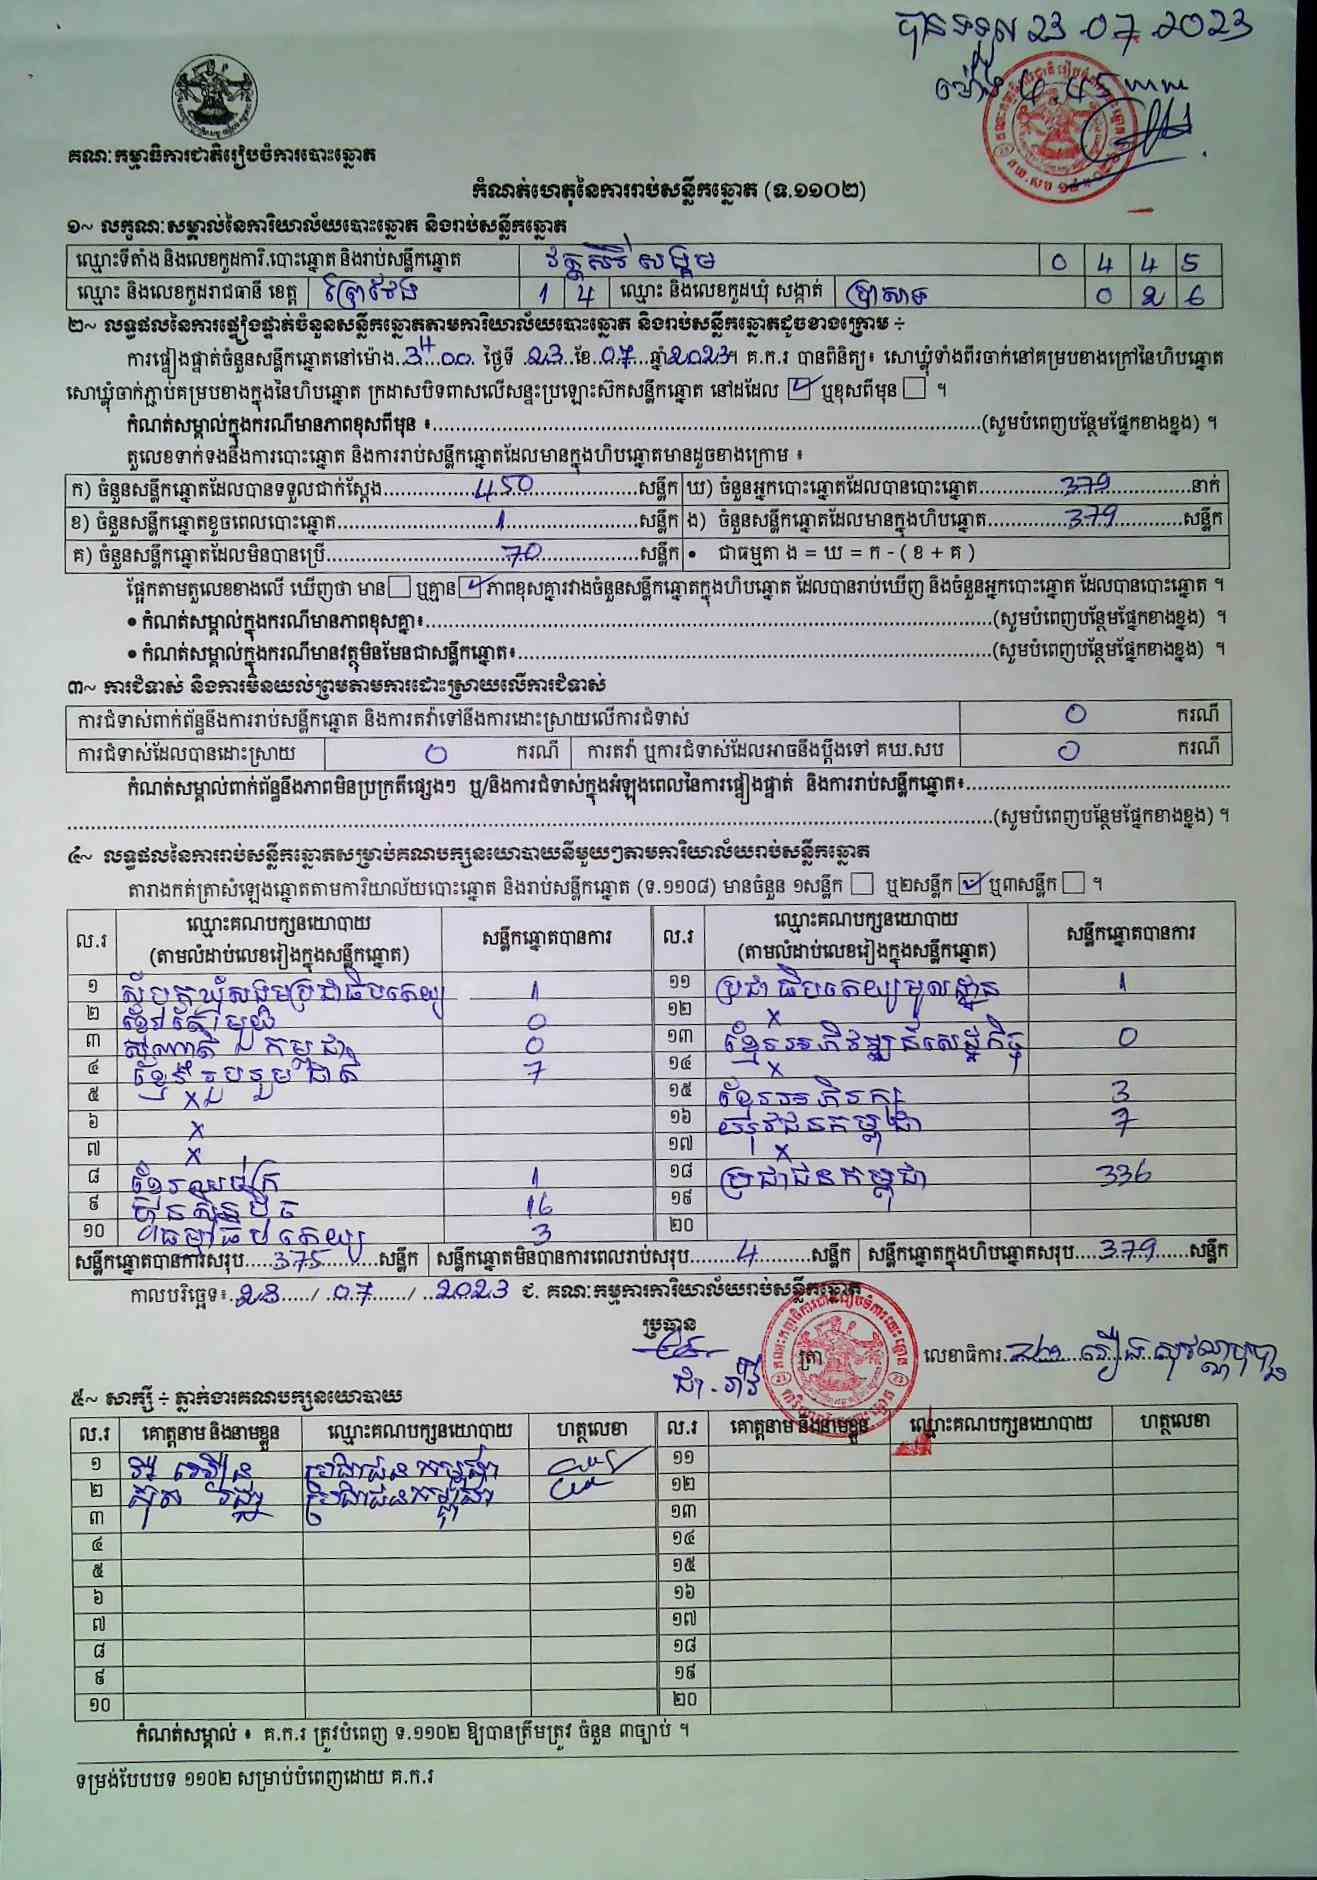 បានទទួល 23.07.2023
ម៉ោង 4 45 នាទី
គណៈកម្មាធិការជាតិរៀបចំការបោះឆ្នោត
កំណត់ហេតុនៃការរាប់សន្លឹកឆ្នោត (ទ.១១០២)
១~ លក្ខណៈសម្គាល់នៃការិយាល័យបោះឆ្នោត និងរាប់សន្លឹកឆ្នោត
ឈ្មោះទីតាំង និងលេខកូដការិ.បោះឆ្នោត និងរាប់សន្លឹកឆ្នោត វត្តសិរីសង្គម 0 4 4 5
ឈ្មោះ និងលេខកូដរាជធានី ខេត្ត ព្រៃវែង 1 4 ឈ្មោះ និងលេខកូដឃុំ សង្កាត់ ប្រាសាទ 0 2 6
២~ លទ្ធផលនៃការផ្ទៀងផ្ទាត់ចំនួនសន្លឹកឆ្នោតតាមការិយាល័យបោះឆ្នោត និងរាប់សន្លឹកឆ្នោតដូចខាងក្រោម ÷
ការផ្ទៀងផ្ទាត់ចំនួនសន្លឹកឆ្នោតនៅម៉ោង 3 00 ថ្ងៃទី 23 ខែ 07 ឆ្នាំ 2023។ គ.ក.រ បានពិនិត្យ៖ សោឃ្លុំទាំងពីរចាក់នៅគម្របខាងក្រៅនៃហិបឆ្នោត
សោឃ្លុំចាក់ភ្ជាប់គម្របខាងក្នុងនៃហិបឆ្នោត ក្រដាសបិទពាសលើសន្ទះប្រឡោះស៊កសន្លឹកឆ្នោត នៅដដែល ☑ ឬខុសពីមុន ☐ ។
កំណត់សម្គាល់ក្នុងករណីមានភាពខុសពីមុន ៖..........(សូមបំពេញបន្ថែមផ្នែកខាងខ្នង) ។
តួលេខទាក់ទងនឹងការបោះឆ្នោត និងការរាប់សន្លឹកឆ្នោតដែលមានក្នុងហិបឆ្នោតមានដូចខាងក្រោម ៖
ក) ចំនួនសន្លឹកឆ្នោតដែលបានទទួលជាក់ស្តែង 450 សន្លឹក ឃ) ចំនួនអ្នកបោះឆ្នោតដែលបានបោះឆ្នោត 379 នាក់
ខ) ចំនួនសន្លឹកឆ្នោតខូចពេលបោះឆ្នោត 1 សន្លឹក ង) ចំនួនសន្លឹកឆ្នោតដែលមានក្នុងហិបឆ្នោត 379 សន្លឹក
គ) ចំនួនសន្លឹកឆ្នោតដែលមិនបានប្រើ 70 សន្លឹក • ជាធម្មតា ង = ឃ = ក - ( ខ + គ )
ផ្អែកតាមតួលេខខាងលើ ឃើញថា មាន ☐ ឬគ្មាន ☑ ភាពខុសគ្នារវាងចំនួនសន្លឹកឆ្នោតក្នុងហិបឆ្នោត ដែលបានរាប់ឃើញ និងចំនួនអ្នកបោះឆ្នោត ដែលបានបោះឆ្នោត ។
• កំណត់សម្គាល់ក្នុងករណីមានភាពខុសគ្នា៖..........(សូមបំពេញបន្ថែមផ្នែកខាងខ្នង) ។
• កំណត់សម្គាល់ក្នុងករណីមានវត្ថុមិនមែនជាសន្លឹកឆ្នោត៖..........(សូមបំពេញបន្ថែមផ្នែកខាងខ្នង) ។
៣~ ការជំទាស់ និងការមិនយល់ព្រមតាមការដោះស្រាយលើការជំទាស់
ការជំទាស់ពាក់ព័ន្ធនឹងការរាប់សន្លឹកឆ្នោត និងការតវ៉ាទៅនឹងការដោះស្រាយលើការជំទាស់ 0 ករណី
ការជំទាស់ដែលបានដោះស្រាយ 0 ករណី ការតវ៉ា ឬការជំទាស់ដែលអាចនឹងប្តឹងទៅ គឃ.សប 0 ករណី
កំណត់សម្គាល់ពាក់ព័ន្ធនឹងភាពមិនប្រក្រតីផ្សេងៗ ឬ/និងការជំទាស់ក្នុងអំឡុងពេលនៃការផ្ទៀងផ្ទាត់ និងការរាប់សន្លឹកឆ្នោត៖..........
..........(សូមបំពេញបន្ថែមផ្នែកខាងខ្នង) ។
៤~ លទ្ធផលនៃការរាប់សន្លឹកឆ្នោតសម្រាប់គណបក្សនយោបាយនីមួយៗតាមការិយាល័យរាប់សន្លឹកឆ្នោត
តារាងកត់ត្រាសំឡេងឆ្នោតតាមការិយាល័យបោះឆ្នោត និងរាប់សន្លឹកឆ្នោត (ទ.១១០៨) មានចំនួន ១សន្លឹក ☐ ឬ២សន្លឹក ☑ ឬ៣សន្លឹក ☐ ។
ល.រ ឈ្មោះគណបក្សនយោបាយ (តាមលំដាប់លេខរៀងក្នុងសន្លឹកឆ្នោត) សន្លឹកឆ្នោតបានការ ល.រ ឈ្មោះគណបក្សនយោបាយ (តាមលំដាប់លេខរៀងក្នុងសន្លឹកឆ្នោត) សន្លឹកឆ្នោតបានការ
១ សំបុកឃ្មុំសង្គមប្រជាធិបតេយ្យ 1 ១១ ប្រជាធិបតេយ្យមូលដ្ឋាន 1
២ ខ្មែរតែមួយ 0 ១២ x
៣ កម្ពុជា 0 ១៣ ខ្មែរអភិវឌ្ឍន៍សេដ្ឋកិច្ច 0
៤ ខ្មែររួបរួមជាតិ 7 ១៤ x
៥ x ១៥ ខ្មែរអភិរក្ស 3
៦ x ១៦ យុវជនកម្ពុជា 7
៧ x ១៧ x
៨ ខ្មែរឈប់ក្រ 1 ១៨ ប្រជាជនកម្ពុជា 336
៩ ហ៊្វុនស៊ិនប៉ិច 16 ១៩
១០ ធម្មាធិបតេយ្យ 3 ២០
សន្លឹកឆ្នោតបានការសរុប 375 សន្លឹក សន្លឹកឆ្នោតមិនបានការពេលរាប់សរុប 4 សន្លឹក សន្លឹកឆ្នោតក្នុងហិបឆ្នោតសរុប 379 សន្លឹក
កាលបរិច្ឆេទ៖ 23 / 07 / 2023 ជ. គណៈកម្មការការិយាល័យរាប់សន្លឹកឆ្នោត
ប្រធាន
ត្រា លេខាធិការ
៥~ សាក្សី ÷ ភ្នាក់ងារគណបក្សនយោបាយ
ល.រ គោត្តនាម និងនាមខ្លួន ឈ្មោះគណបក្សនយោបាយ ហត្ថលេខា ល.រ គោត្តនាម និងនាមខ្លួន ឈ្មោះគណបក្សនយោបាយ ហត្ថលេខា
១ ប្រជាជនកម្ពុជា ១១
២ ប្រជាជនកម្ពុជា ១២
៣ ១៣
៤ ១៤
៥ ១៥
៦ ១៦
៧ ១៧
៨ ១៨
៩ ១៩
១០ ២០
កំណត់សម្គាល់ ៖ គ.ក.រ ត្រូវបំពេញ ទ.១១០២ ឱ្យបានត្រឹមត្រូវ ចំនួន ៣ច្បាប់ ។
ទម្រង់បែបបទ ១១០២ សម្រាប់បំពេញដោយ គ.ក.រ